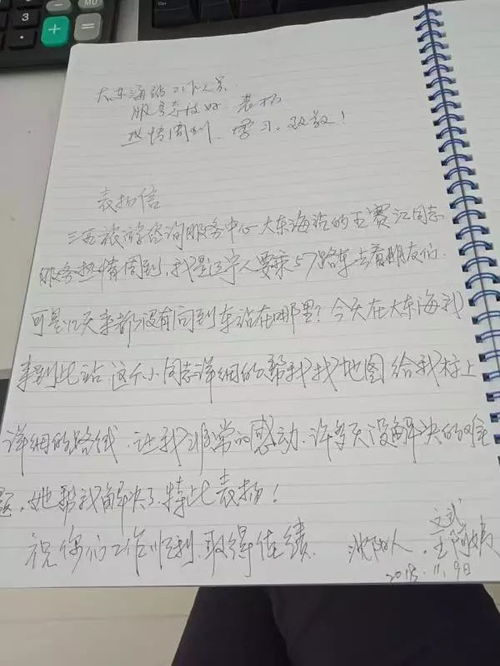 MU
大东海站工作人员
服务态度好 表扬
热情周到、学习、致敬!
表扬信
三亚旅游咨询服务中心大东海站的王赛江同志
服务热情周到,我是辽宁人要乘57路车去看朋友们.
可是几天来都没有问到车站在哪里?今天在大东海我
来到此站 这个小同志详细的帮我找地图给我标上
详细的路线.让我非常的感动.许多天没解决的难
题,她帮我解决了.特此表扬!
祝你们工作顺利.取得佳绩. 沈阳人.
2018.11.9日